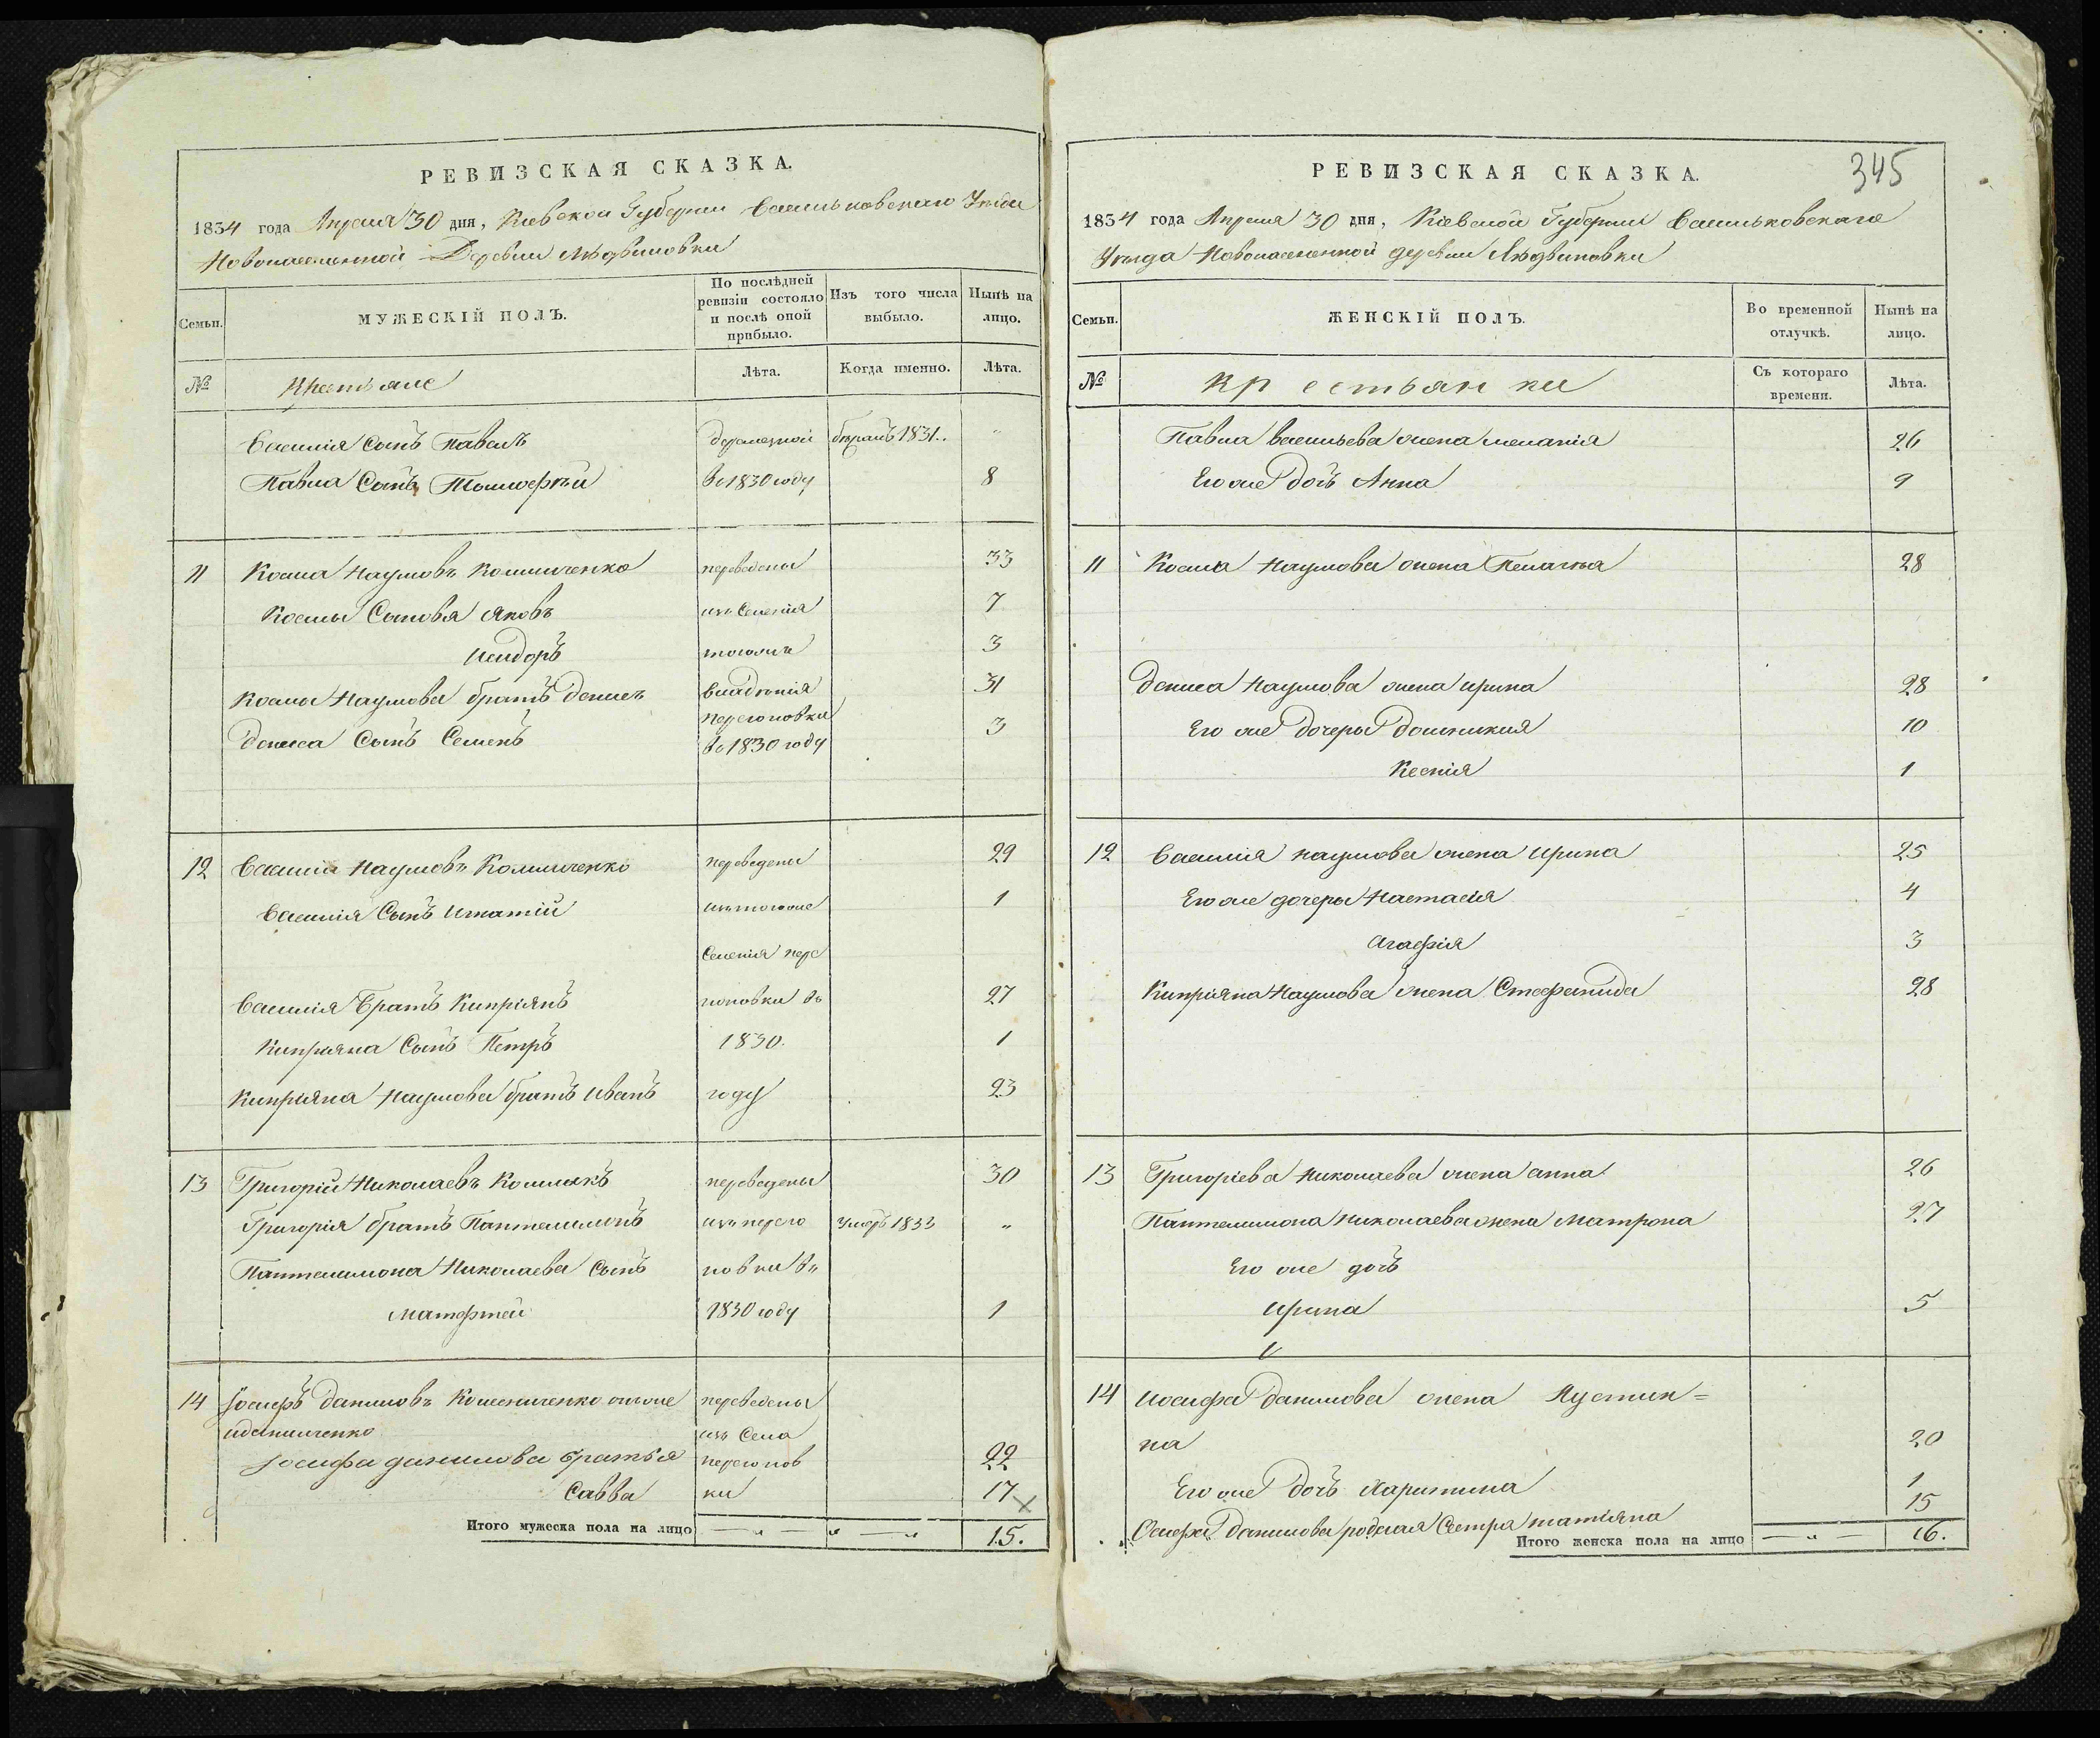 РЕВИЗСКАЯ СКАЗКА.
1834 года Апреля 30 дня, Киевской Губернии Васильковскаго Уезда
Новонаселенной Деревни Людвиновки
Семьи.
МУЖЕСКІЙ ПОЛЪ.
По послѣдней ревизіи состояло и послѣ оной прибыло.
Изъ того числа выбыло.
Нынѣ на лицо.
№ Крестьяне Лѣта. Когда именно. Лѣта.
Василія Сынъ Павелъ 1831. "
Павла Сынъ Тимофей въ 1830 году 8
11 Косма Наумовъ Колииченко переведены 33
Космы Сыновя Яковъ изъ Селенія 7
Исидоръ 3
Космы Наумова братъ Денисъ 31
переgoновки
Дениса Сынъ Семенъ въ 1830 году 3
12 Василій Наумовъ Колииченко переведены 29
Василія Сынъ Игнатій изъ тогоже 1
Селенія пере
Василія Братъ Кипріянъ гоновки въ 27
Кипріяна Сынъ Петръ 1830. 1
Кипріяна Наумова братъ Иванъ году 23
13 Григорій Николаевъ переведены 30
Григорія братъ Пантелимонъ изъ перего умеръ 1833 "
Пантелимона Николаева Сынъ новки въ
Матфтей 1830 году 1
14 Іосифъ Даниловъ онже переведены
иданиличенко изъ Села
Іосифа данилова братья перегонов 22
Савва ки 17 ×
Итого мужеска пола на лицо — " — " — " 15.
345
РЕВИЗСКАЯ СКАЗКА.
1834 года Апреля 30 дня, Кіевской Губерніи Васильковскаго
Уезда Новонаселенной деревни Людвиновки
Семьи.
ЖЕНСКІЙ ПОЛЪ.
Во временной отлучкѣ.
Нынѣ на лицо.
№ Крестьянки Съ котораго времени. Лѣта.
Павла васильева жена меланія 26
Его же дочь Анна 9
11 Косма Наумова жена Пелагѣя 28
Дениса Наумова жена ирина 28
Его же дочеры Домникия 10
Ксенія 1
12 Василія наумова жена Ирина 25
Его же дочеры Настасія 4
Агафія 3
Кипріяна Наумова жена Стефанида 28
13 Григоріева Николаева жена анна 26
Пантелимона Николаева жена Матрона 27
Его же дочъ
Ирина 5
14 Иосифа Данилова жена Иустин=
на 20
Его же дочъ Харитина 1
Осифа Данилова родная Сестра татіяна 15
Итого женска пола на лицо — " — 16.